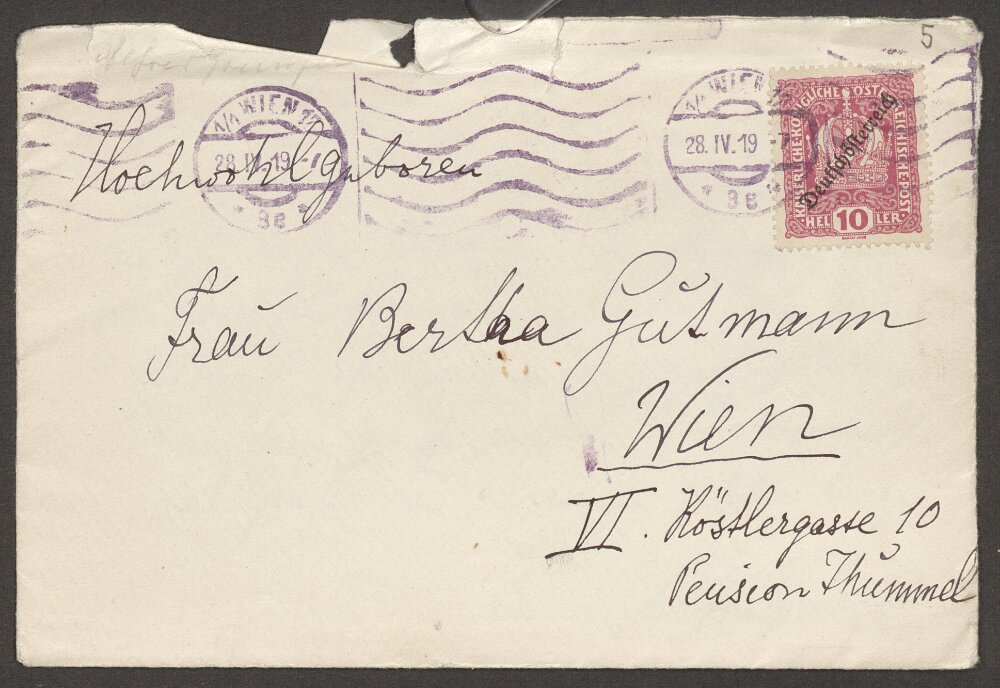 5
1/1 WIEN
28. IV. 19
* 8e *
1/1 WIEN
28. IV. 19
* 8e *
KAISERLICHE KÖNIGLICHE ÖSTERREICHISCHE POST
Deutschösterreich
HELLER
10
Hochwohlgeboren
Frau Bertha Gutmann
Wien
VI. Köstlergasse 10
Pension Thummel